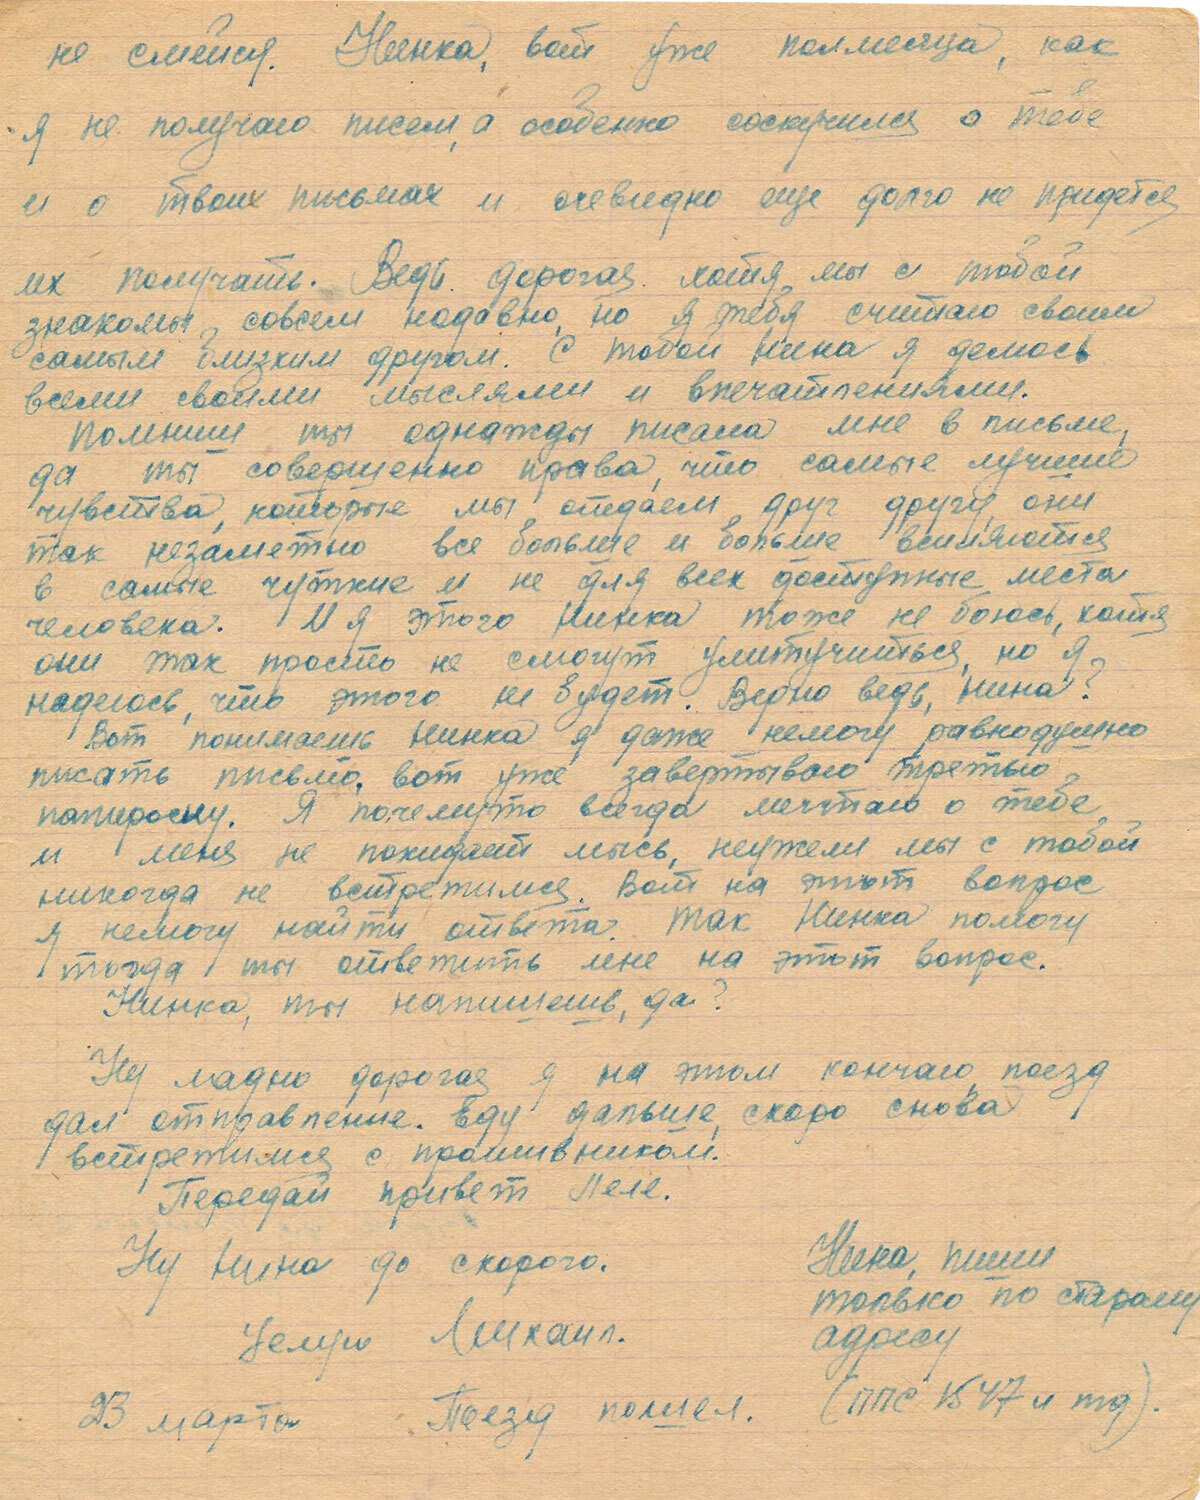 не смейся. Нинка, вот уже полмесяца, как
я не получаю писем, а особенно соскучился о тебе
и о твоих письмах и очевидно еще долго не придется
их получать. Ведь дорогая хотя мы с тобой
знакомы совсем недавно, но я тебя считаю своим
самым близким другом. С тобой Нина я делюсь
всеми своими мыслями и впечатлениями.
Помниш ты однажды писала мне в письме,
да ты совершенно права, что самые лучшие
чувства, которые мы отдаем друг другу, они
так незаметно все больше и больше
в самые чуткие и не для всех доступные места
человека. И я этого Нинка тоже не боюсь, хотя
они так просто не смогут улитучиться, но я
надеюсь, что этого не будет. Верно ведь, Нина?
Вот понимаешь Нинка я даже немогу равнодушно
писать письмо, вот уже завертываю третью
папироску. Я почемуто всегда мечтаю о тебе,
и меня не покидает мысь, неужели мы с тобой
никогда не встретимся. Вот на этот вопрос
я немогу найти ответа. Так Нинка помогу
тогда ты ответить мне на этот вопрос.
Нинка, ты напишешь, да?
Ну ладно дорогая я на этом кончаю, поезд
дал отправление. Еду дальше, скоро снова
встретимся с противником.
Передай привет Леле.
Ну Нина до скорого.
Целую Михаил.
23 марта Поезд пошел.
Нина, пиши
только по старому
адресу
(ППС 1547 и тд).